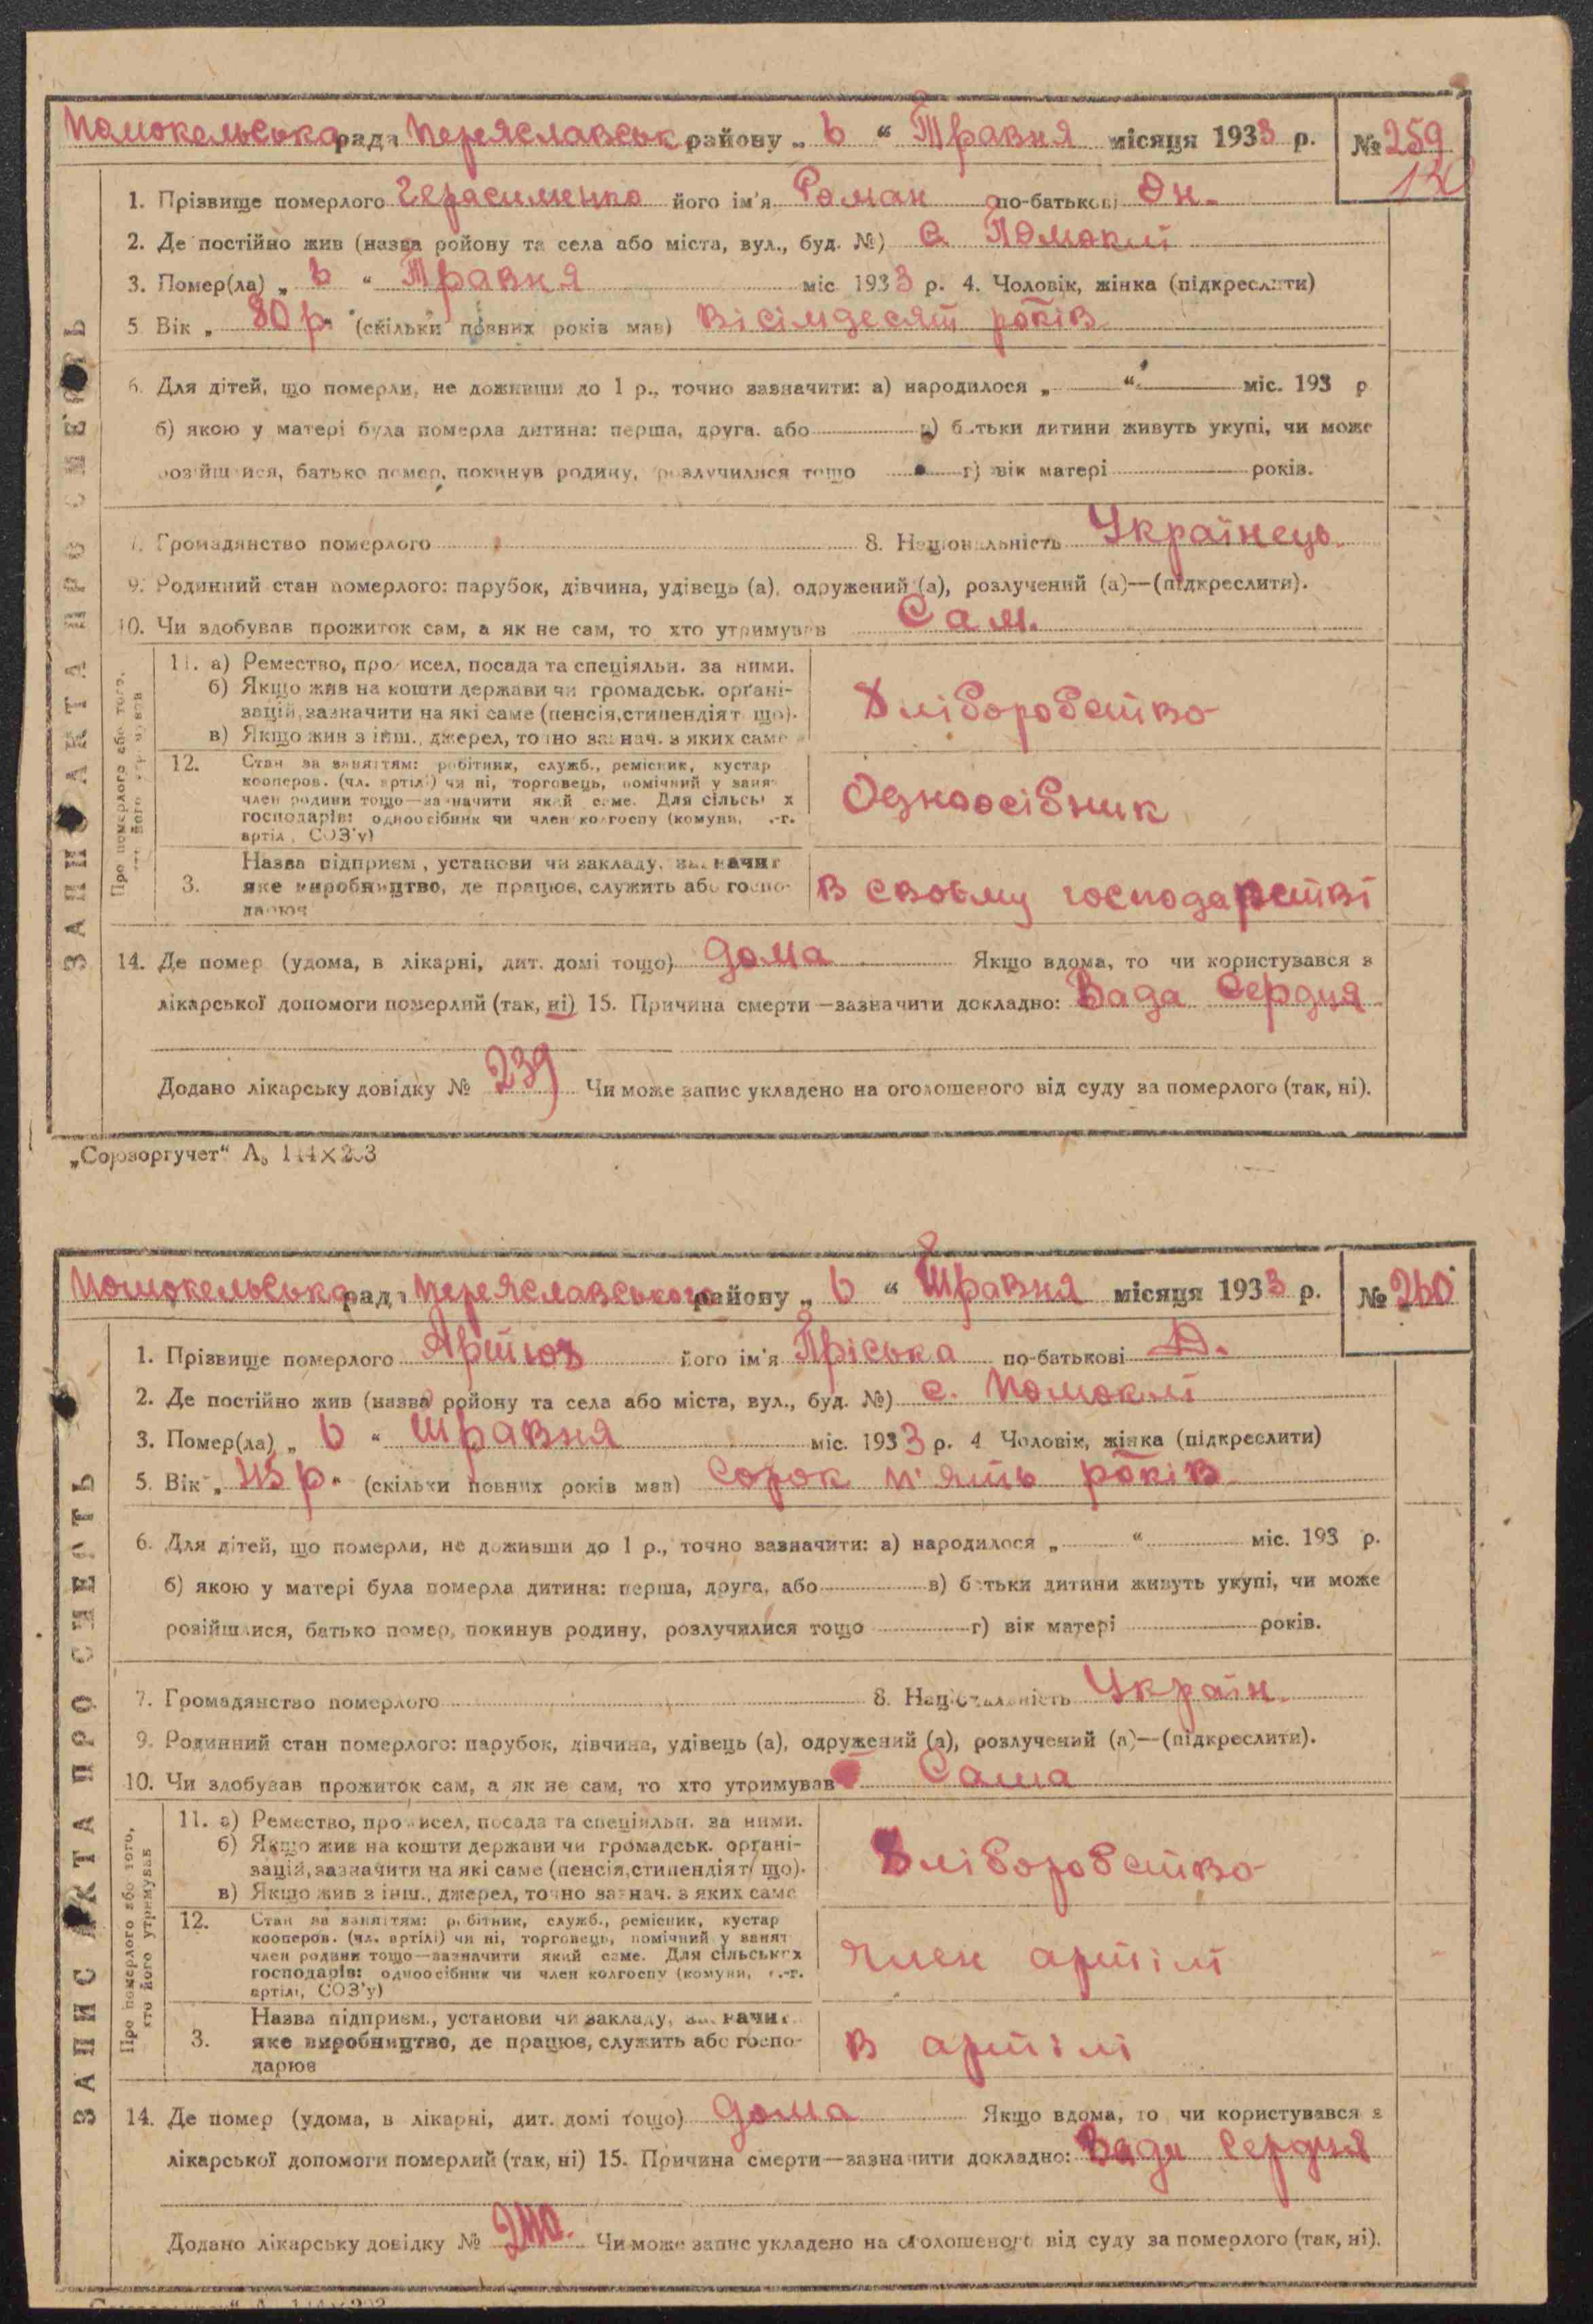 Помокельська рада Переяславськ району „ 6 “ Травня місяця 1933 р. № 259
1. Прізвище померлого Герасименко його ім'я Роман по-батькові Он.
2. Де постійно жив (назва ройону та села або міста, вул., буд. №) с. Помоклі
3. Помер(ла) „ 6 “ Травня міс 1933 р. 4. Чоловік, жінка (підкреслити)
5 Вік „ 80 р. “ (скільки повних років мав) Вісімдесят років
6. Для дітей, що померли, не доживши до 1 р., точно зазначити: а) народилося „ “ міс. 193 р
б) якою у матері була померла дитина: перша, друга. або в) батьки дитини живуть укупі, чи може
розійшлися, батько помер, покинув родину, розлучилися тощо г) вік матері років.
7. Громадянство померлого 8. Національність Українець.
9. Родинний стан померлого: парубок, дівчина, удівець (а), одружений (а), розлучений (а)—(підкреслити).
10. Чи здобував прожиток сам, а як не сам, то хто утримував Сам.
ЗАПИС АКТА ПРО СМЕРТЬ
Про померлого або того, хто його утримував
11. а) Ремество, промисел, посада та спеціяльн. за ними.
б) Якщо жив на кошти держави чи громадськ. органі-
зацій, зазначити на які саме (пенсія, стипендія тощо).
в) Якщо жив з інш., джерел, точно зазнач. з яких саме
Хліборобство
12. Стан за заняттям: робітник, служб., ремісник, кустар
кооперов. (чл. артілі) чи ні, торговець, помічний у занят
член родини тощо—зазначити який саме. Для сільськ х
господарів: одноосібник чи член колгоспу (комуни, с.-г.
артіл , СОЗ'у)
Одноосібник
Назва підприєм , установи чи закладу, зазначит
3. яке виробництво, де працює, служить або госпо-
дарює
В своєму господарстві
14. Де помер (удома, в лікарні, дит. домі тощо) дома Якщо вдома, то чи користувався з
лікарської допомоги померлий (так, ні) 15. Причина смерти—зазначити докладно: Вада Сердця
Додано лікарську довідку № 239 Чи може запис укладено на оголошеного від суду за померлого (так, ні).
„Союзоргучет“ А₅ 144×203
Помокельська рада Переяславського району „ 6 “ Травня місяця 1933 р. № 260
1. Прізвище померлого Артюх його ім'я Пріська по-батькові Д.
2. Де постійно жив (назва ройону та села або міста, вул., буд. №) с. Помоклі
3. Помер(ла) „ 6 “ Травня міс. 1933 р. 4 Чоловік, жінка (підкреслити)
5. Вік „ 45 р. “ (скільки повних років мав) Сорок п'ять років
6. Для дітей, що померли, не доживши до 1 р., точно зазначити: а) народилося „ “ міс. 193 р.
б) якою у матері була померла дитина: перша, друга, або в) батьки дитини живуть укупі, чи може
розійшлися, батько помер, покинув родину, розлучилися тощо г) вік матері років.
7. Громадянство померлого 8. Національність Україн.
9. Родинний стан померлого: парубок, дівчина, удівець (а), одружений (а), розлучений (а)—(підкреслити).
10. Чи здобував прожиток сам, а як не сам, то хто утримував Сама
ЗАПИС АКТА ПРО СМЕРТЬ
Про померлого або того, хто його утримував
11. а) Ремество, промисел, посада та спеціяльн. за ними.
б) Якщо жив на кошти держави чи громадськ. органі-
зацій, зазначити на які саме (пенсія, стипендія тощо).
в) Якщо жив з інш., джерел, точно зазнач. з яких саме
Хліборобство
12. Стан за заняттям: робітник, служб., ремісник, кустар
кооперов. (чл. артілі) чи ні, торговець, помічний у занят
член родини тощо—зазначити який саме. Для сільських
господарів: одноосібник чи член колгоспу (комуни, с.-г.
артілі, СОЗ'у)
член артілі
Назва підприєм., установи чи закладу, зазначит
3. яке виробництво, де працює, служить або госпо-
дарює
в артілі
14. Де помер (удома, в лікарні, дит. домі тощо) дома Якщо вдома, то чи користувався з
лікарської допомоги померлий (так, ні) 15. Причина смерти—зазначити докладно: Вади Сердця
Додано лікарську довідку № 240. Чи може запис укладено на оголошеного від суду за померлого (так, ні).